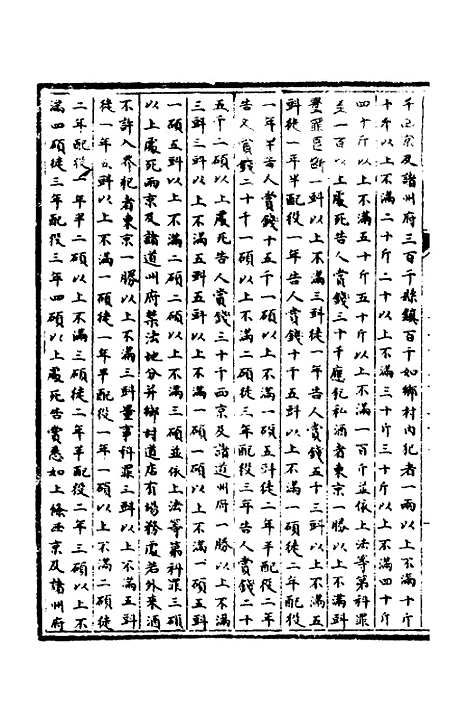 千西京及諸州府三百千縣鎮百千如鄉村內犯者一兩以上不滿十斤
十斤以上不滿二十斤二十以上不滿三十斤三十斤以上不滿四十斤
四十斤以上不滿五十斤五十斤以上不滿一百斤並依上法等第科罪
至一百以上處死告人賞錢三十千應犯私酒者東京一勝以上不滿㪷
量罪臣斷一㪷以上不滿三㪷徒一年告人賞錢五十三㪷以上不滿五
㪷徒一年半配役一年告人賞錢十千五㪷以上不滿一碩徒二年配役
一年半告人賞錢十五千一碩以上不滿一碩五㪷徒二年半配役二年
告人賞錢二十千一碩以上不滿二碩徒三年配役三年告人賞錢二十
五千二碩以上處死告人賞錢三十千西京及諸道州府一勝以上不滿
三㪷三㪷以上不滿五㪷五㪷以上不滿一碩一碩以上不滿一碩五㪷
一碩五㪷以上不滿二碩二碩以上不滿三碩並依上法等第科罪三碩
以上處死兩京及諸道州府禁法地分并鄉村道店有場務處若外來酒
不許入界犯者東京一勝以上不滿三㪷量事科罪三㪷以上不滿五㪷
徒一年五㪷以上不滿一碩徒一年半配役一年一碩以上不滿二碩徒
二年配役一年半二碩以上不滿三碩徒二年半配役二年三碩以上不
滿四碩徒三年配役三年四碩以上處死告賞悉如上條西京及諸州府